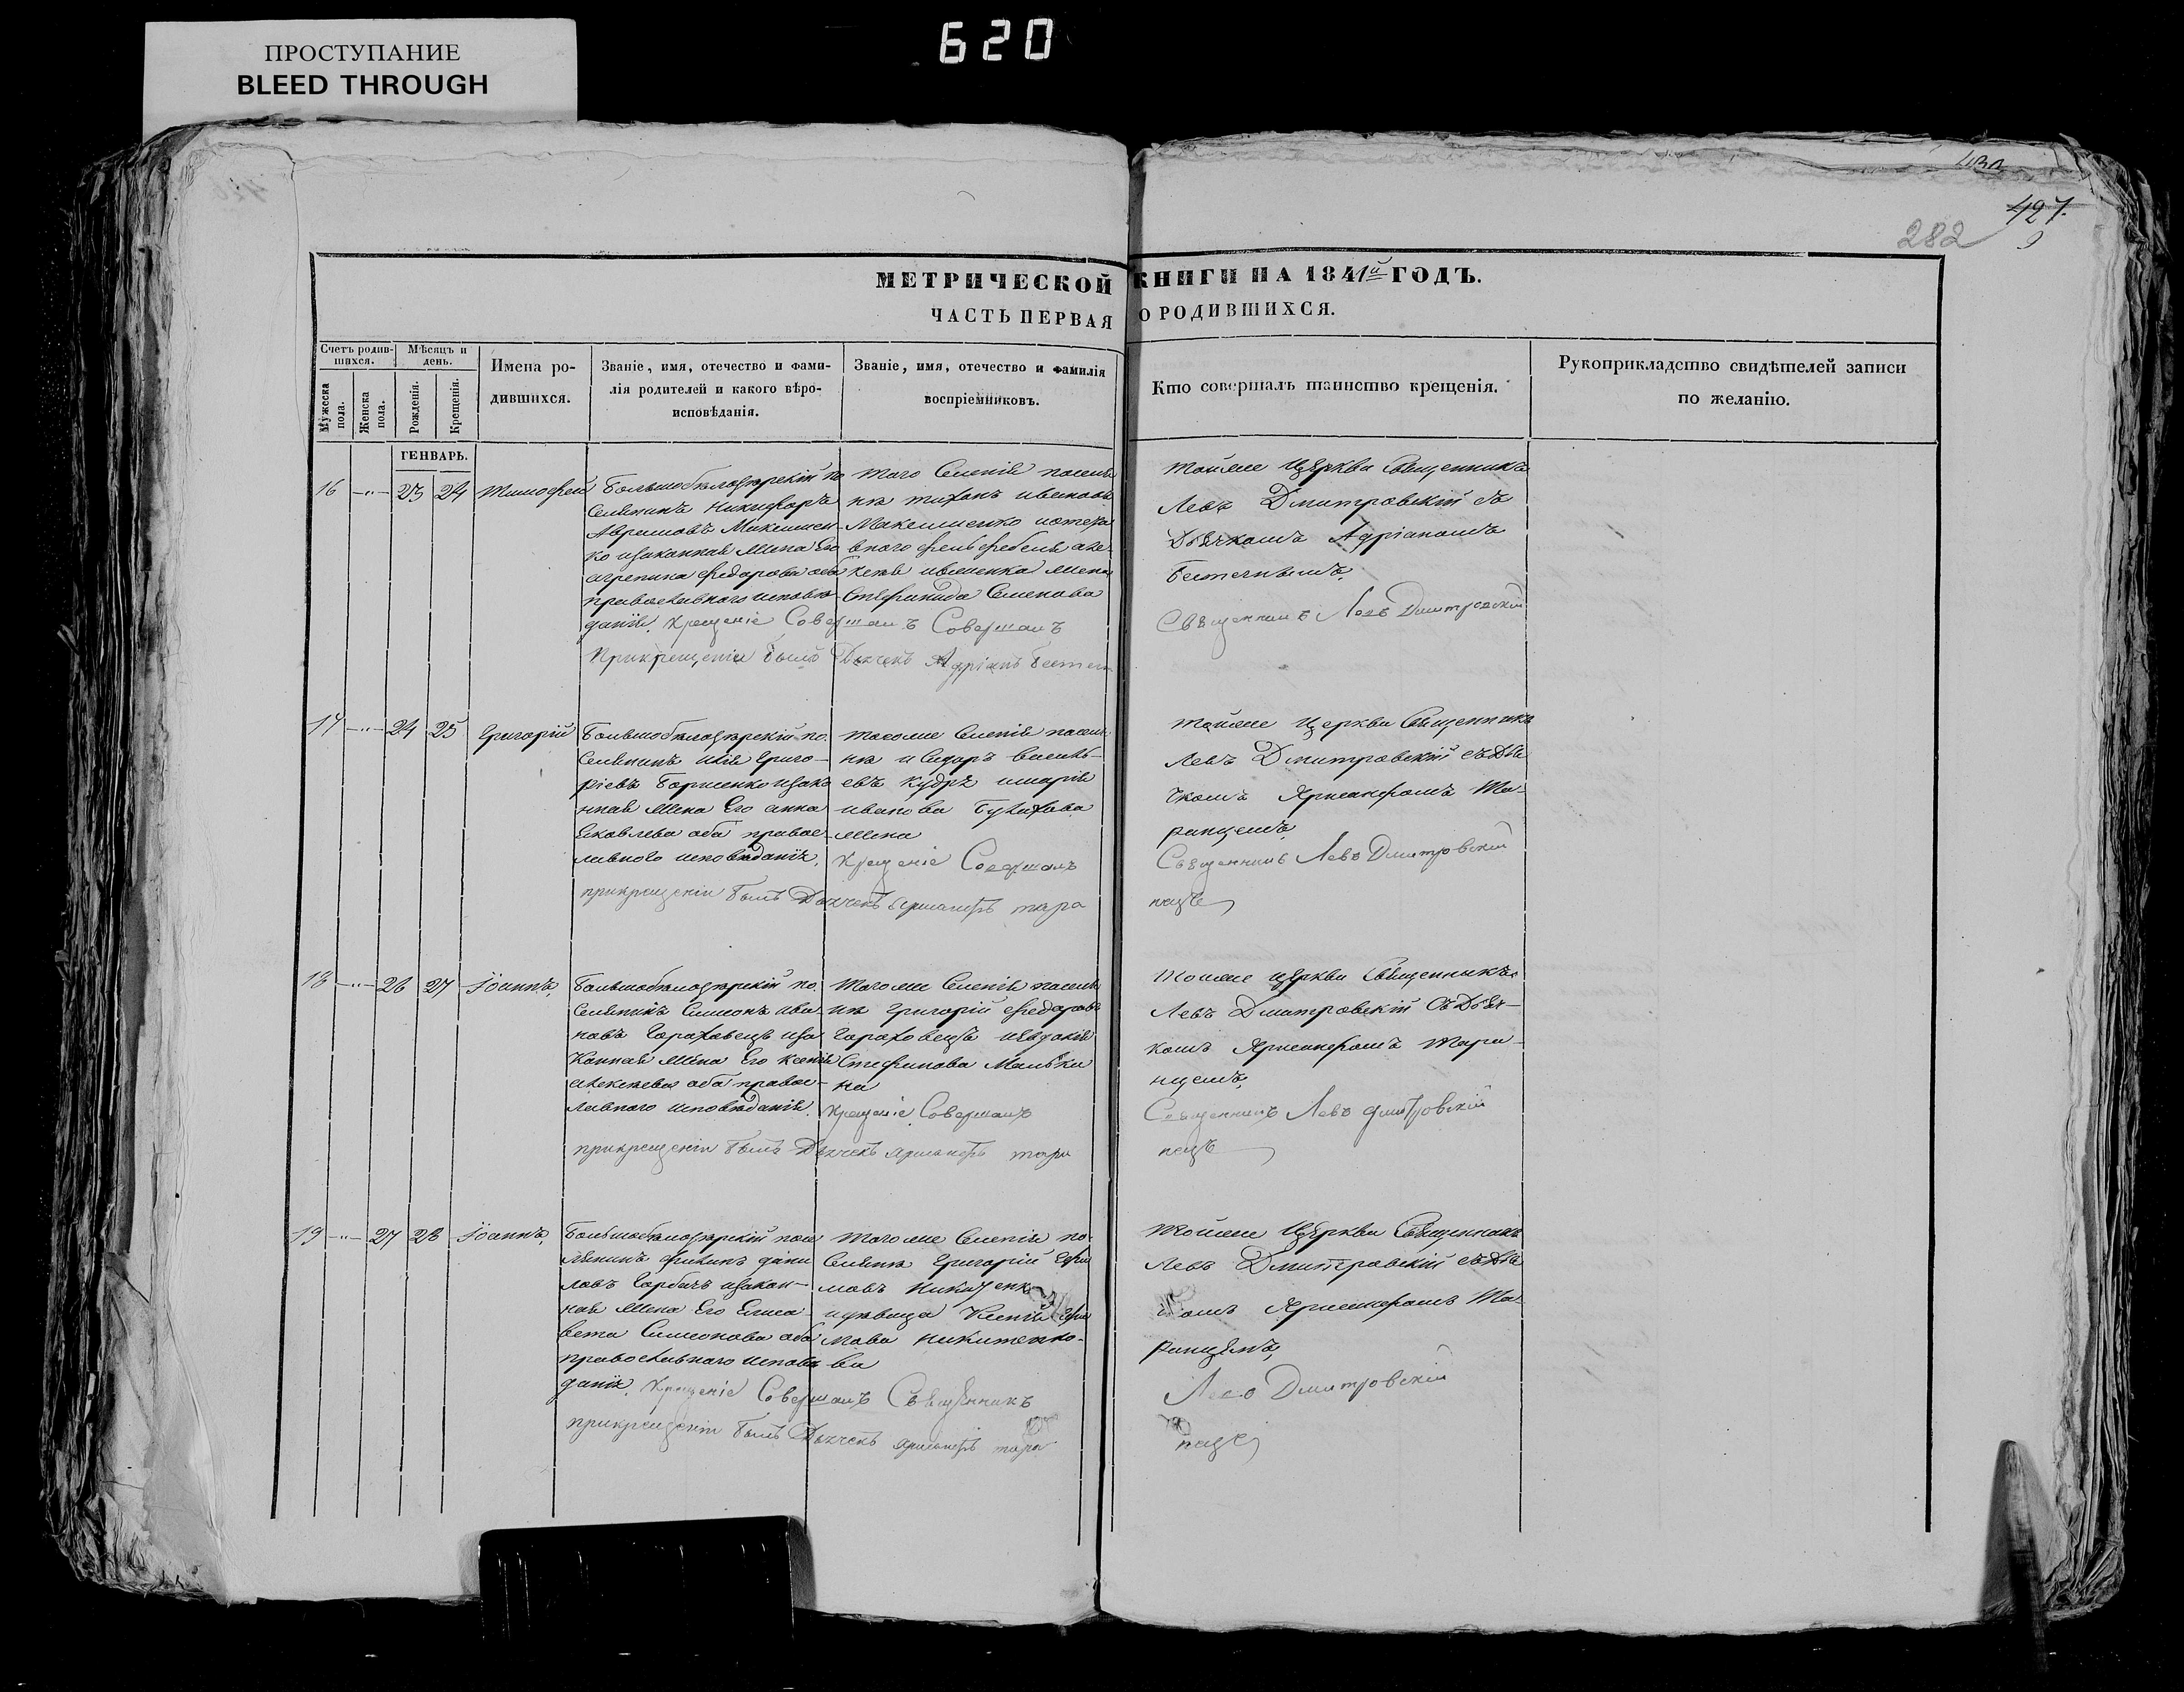 ПРОСТУПАНИЕ
BLEED THROUGH
620
427
282
МЕТРИЧЕСКОЙ КНИГИ НА 1841й ГОДЪ.
ЧАСТЬ ПЕРВАЯ О РОДИВШИХСЯ.
Счетъ родив-
шихся.
Мужеска пола.
Женска пола.
Мѣсяцъ и
день.
Рожденія.
Крещенія.
Имена ро-
дившихся.
Званіе, имя, отечество и фами-
лія родителей и какого вѣро-
исповѣданія.
Званіе, имя, отечество и фамилія
воспріемниковъ.
Кто совершалъ таинство крещенія.
Рукоприкладство свидѣтелей записи
по желанію.
ГЕНВАРЬ.
16 23 24 Тимофей
Большобѣлозерскій по
селянинъ Никифоръ
Аврамовъ Максимен-
ко изаконная жена Его
агрепина федорова оба
православного исповѣ
данія. Крещеніе Совершалъ Совершалъ
При крещеніи былъ Дьячекъ Адріанъ
того Селенія поселя
нѣ тихонъ ивановъ
Максименко
жена
Стефанида Семенова
тойже Церкви Священникъ
Левъ Дмитровскій съ
Дьячкомъ Адріаномъ
Священникъ Левъ Дмитровскій
17 24 25 Григорій
Большобѣлозерскій по
селянинъ илія Григо-
ріевъ Борменко изако
нная жена Его анна
Яковлева оба правос-
лавного исповѣданія.
тогоже Селенія поселя
нѣ исидоръ василь-
евъ Кудрѣ имарія
иванова
жена
Крещеніе Совершалъ
при крещеніи былъ Дьячекъ тара
тойже Церкви Священникъ
Левъ Дмитровскій съ Дья
чкомъ Ярмемфомъ Та-
ранцемъ,
Священникъ Левъ Дмитровскій
нецъ
18 26 27 Іоаннъ,
Большобѣлозерскій по
селянинъ Симеонъ ива
новъ Гороховецъ иза
конная жена Его ксенія
алексѣева оба правос-
лавного исповѣданія.
Тогоже Селенія поселя
нѣ Григорій Федоровъ
Гороховецъ иевдокія
Стефанова Малькина
Крещеніе Совершалъ
при крещеніи былъ Дьячекъ тара
Тойже церкви Священникъ
Левъ Дмитровскій Съ Дьяч-
комъ Ярмемфомъ Тара-
нцемъ,
Священникъ Левъ Дмитровскій
нецъ
19 27 28 Іоаннъ,
Большобѣлозерскій посе
лянинъ филипъ дани
ловъ Горбачъ изакон-
ная жена Его Елиса
вета Симеонова оба
православнаго исповѣ
данія. Крещеніе Совершалъ Священникъ
при крещеніи былъ Дьячекъ тара
Тогоже Селенія по
селянѣ Григорій Ефи
мовъ Никитенко
идѣвица Ксенія Ефи
мова никитенко-
ва
Тойже Церкви Священникъ
Левъ Дмитровскій съ Дья
чкомъ Ярмемфомъ Та-
ранцемъ,
Левъ Дмитровскій
нецъ